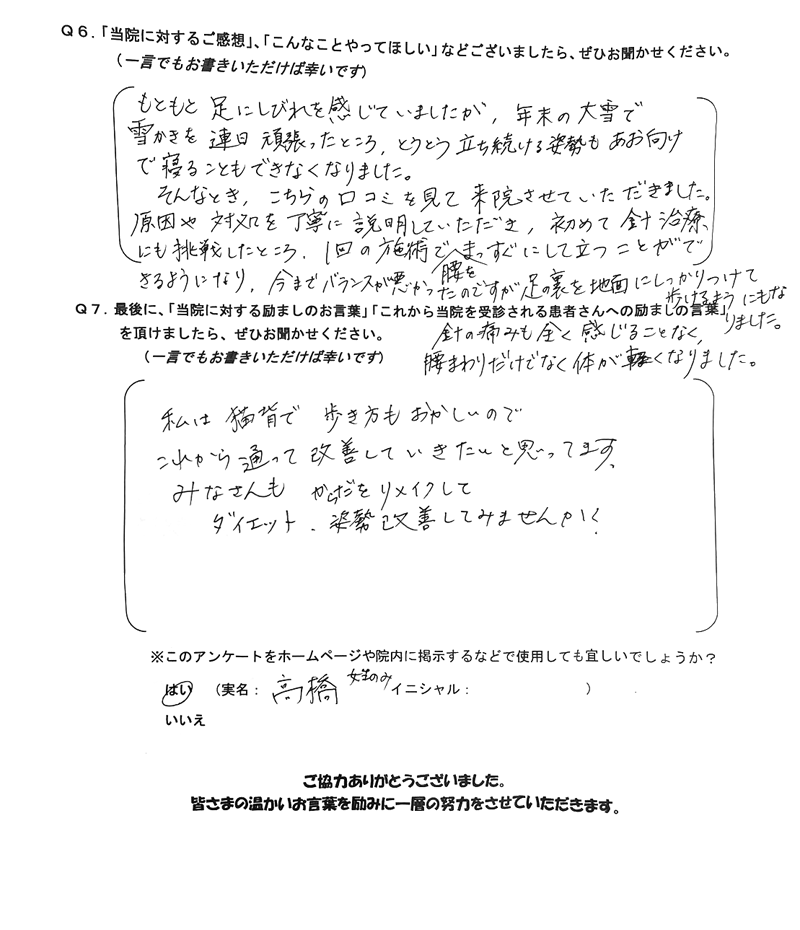 Q6.「当院に対するご感想」、「こんなことやってほしい」などございましたら、ぜひお聞かせください。
(一言でもお書きいただけば幸いです)
もともと 足にしびれを感じていましたが、年末の大雪で
雪かきを 連日 頑張ったところ、とうとう 立ち続ける姿勢も あお向け
で寝ることもできなくなりました。
そんなとき、こちらの口コミを見て 来院させていただきました。
原因や 対処を丁寧に説明していただき、初めて 針治療
にも挑戦したところ、1回の施術で腰をまっすぐにして立つことがで
きるようになり、今までバランスが悪かったのですが足の裏を地面にしっかりつけて
歩けるようにもなりました。
針の痛みも全く感じることなく、
腰まわりだけでなく体が軽くなりました。
Q7.最後に、「当院に対する励ましのお言葉」「これから当院を受診される患者さんへの励ましの言葉」
を頂けましたら、ぜひお聞かせください。
(一言でもお書きいただけば幸いです)
私は 猫背で 歩き方も おかしいので
これから 通って 改善していきたいと思ってます。
みなさんも からだをリメイクして
ダイエット、姿勢改善してみませんか?
※このアンケートをホームページや院内に掲示するなどで使用しても宜しいでしょうか?
はい (実名: 高橋 女生のみ イニシャル: )
いいえ
ご協力ありがとうございました。
皆さまの温かいお言葉を励みに一層の努力をさせていただきます。